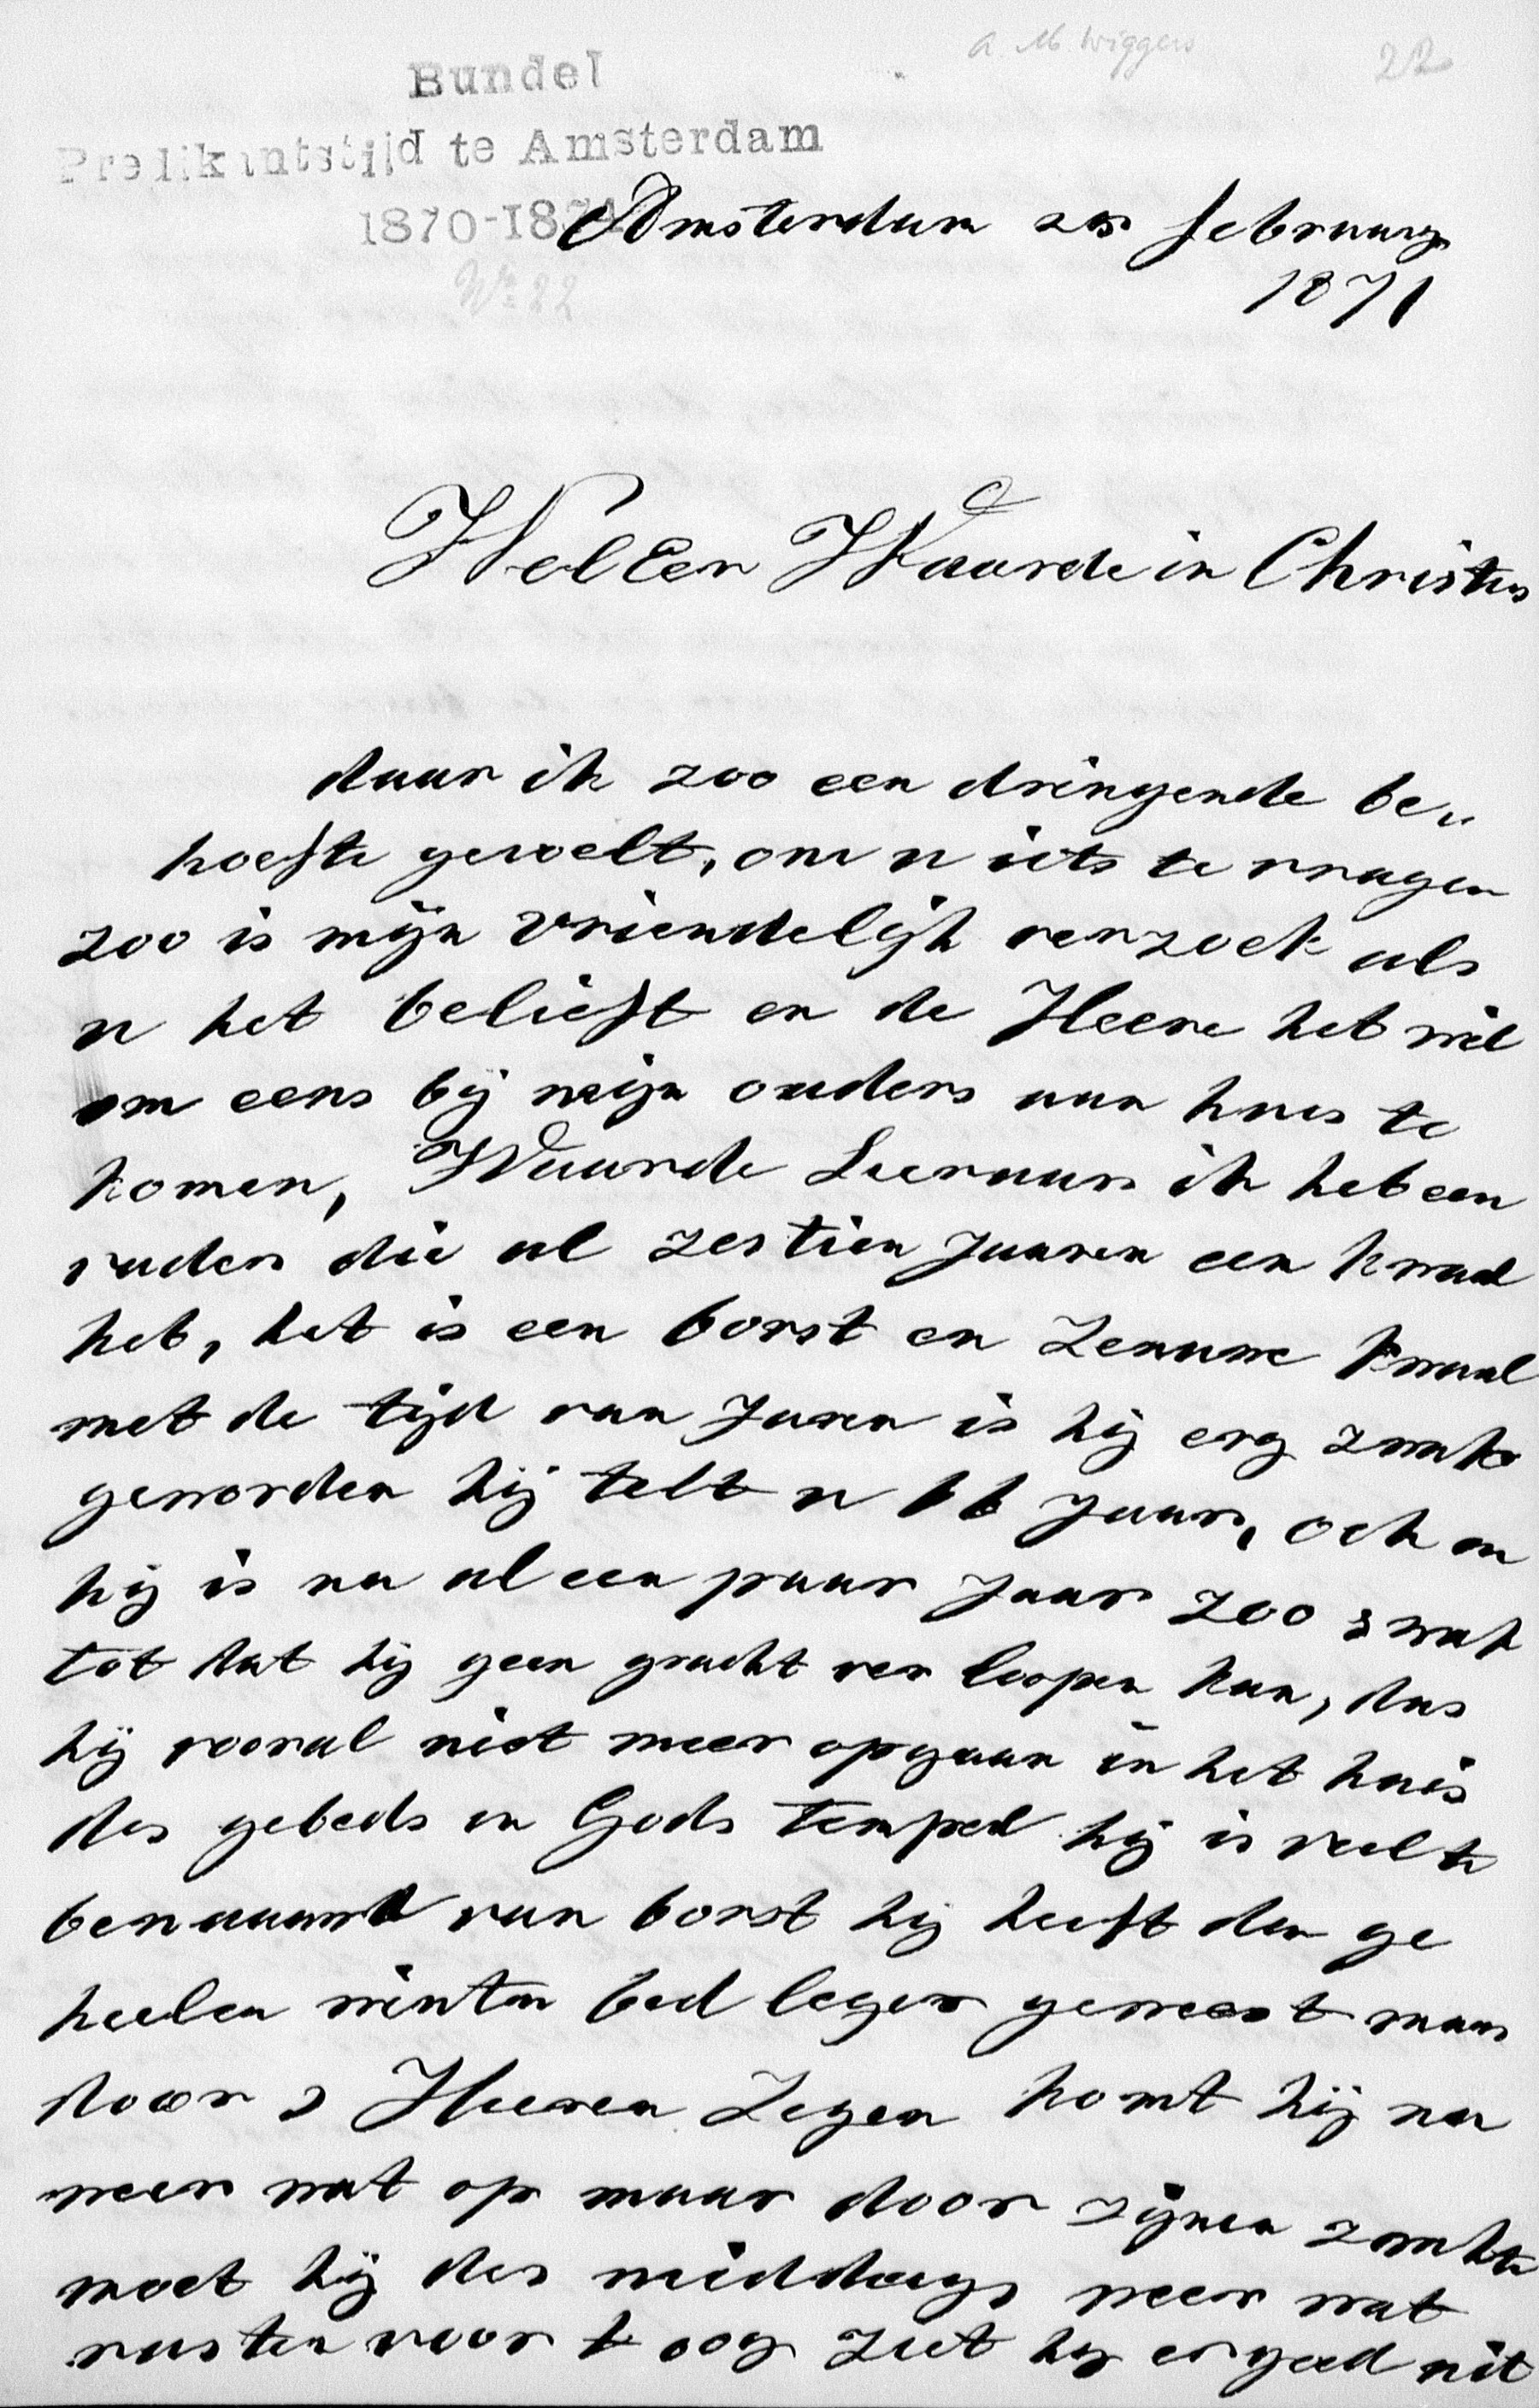 A. M. Wiggers
22
Bundel
Predikantstijd te Amsterdam
1870-1874
Amsterdam februarij
1871
No 22
Wel Eer Waarde in Christus
daar ik zoo een dringende be„
hoefte gevoelt, om u iets te vragen
zoo is mijn vriendelijk verzoek als
u het belieft en de Heere het wil
om eens bij mijn ouders aan huis te
komen, Waarde Leeraar ik heb een
vader die al zestien Jaaren een kwaal
heb, het is een borst en Zenuwe kwaal
met de tijd van Jaren is hij erg zwak
geworden hij telt u 66 Jaar, och en
hij is nu al een paar Jaar zoo zwak
tot dat hij geen gracht ver loopen kan, dus
hij vooral niet meer opgaan in het huis
des gebeds en Gods tempel hij is veel te
benaauwd van borst hij heeft den ge
heelen winter bed leger geweest maar
door s Heeren Zegen komt hij nu
weer wat op maar door zijnen zwakte
moet hij des middags weer wat
rusten voor t oog ziet hij er goed uit